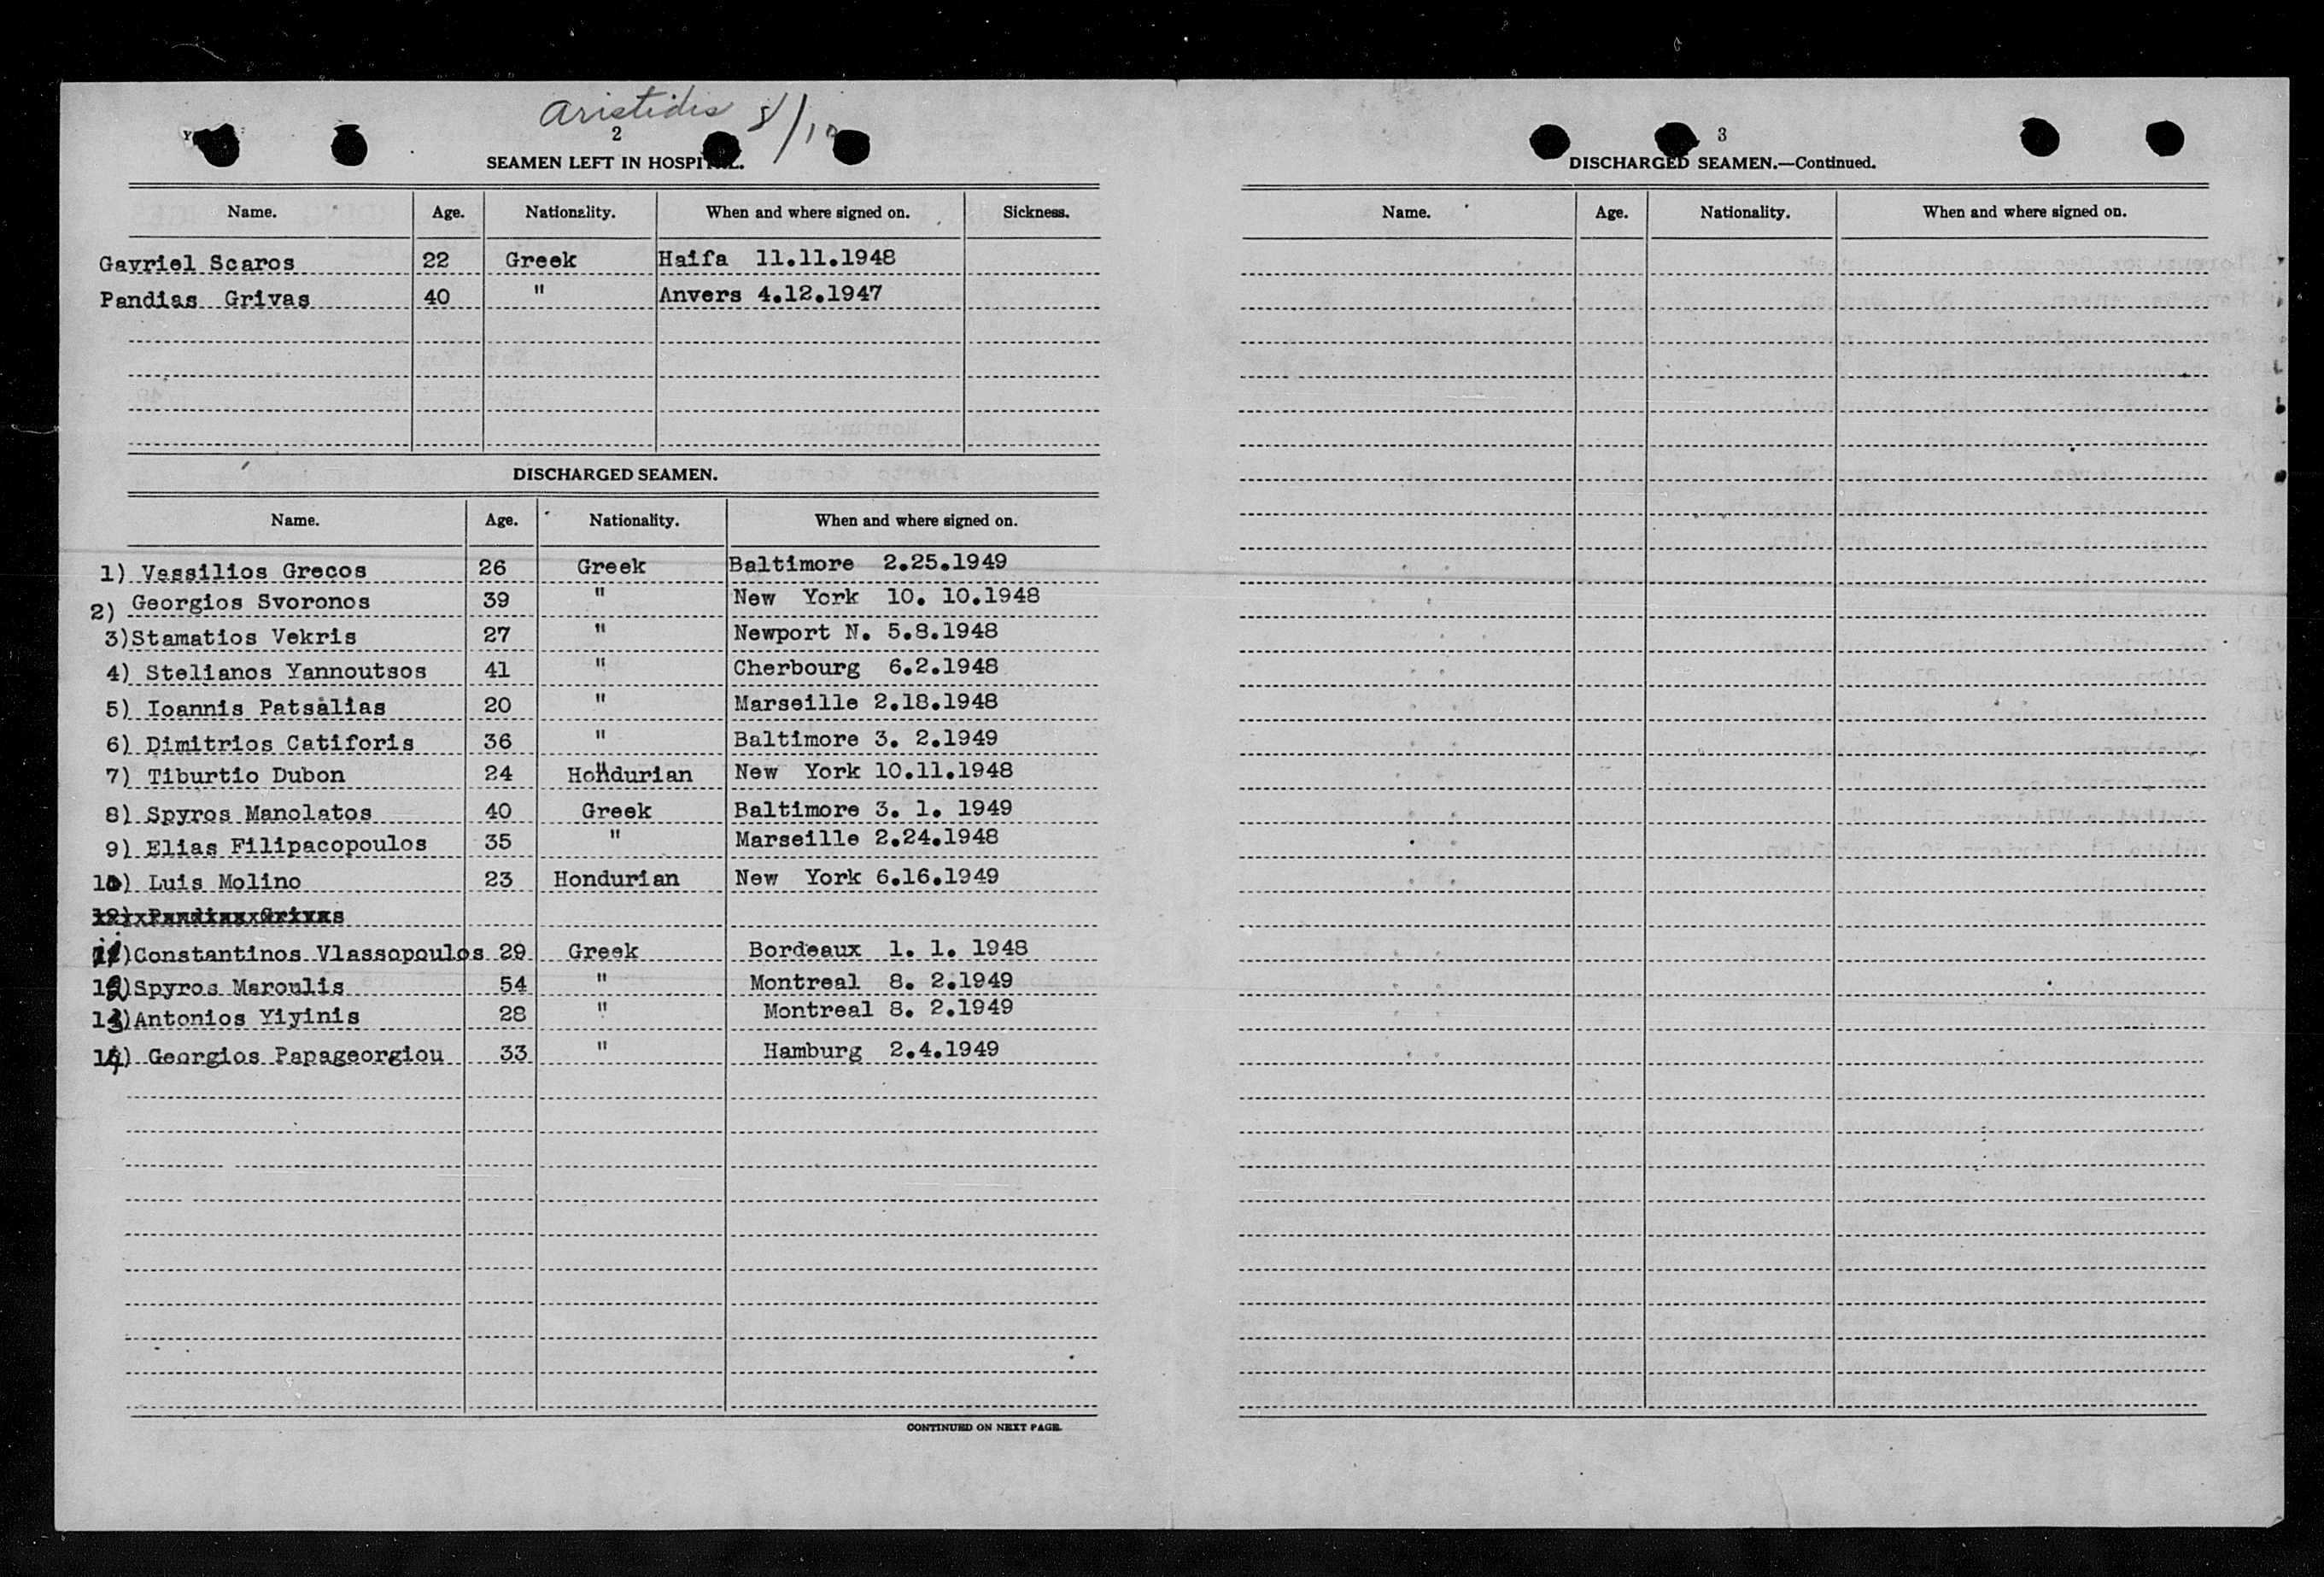 Aristidis 8/10
2
SEAMEN LEFT IN HOSPITAL.
Name. Age. Nationality. When and where signed on. Sickness.
Gavriel Scaros 22 Greek Haifa 11.11.1948
Pandias Grivas 40 " Anvers 4.12.1947
DISCHARGED SEAMEN.
Name. Age. Nationality. When and where signed on.
1) Vassilios Grecos 26 Greek Baltimore 2.25.1949
2) Georgios Svoronos 39 " New York 10. 10.1948
3)Stamatios Vekris 27 " Newport N. 5.8.1948
4) Stelianos Yannoutsos 41 " Cherbourg 6.2.1948
5) Ioannis Patsalias 20 " Marseille 2.18.1948
6) Dimitrios Catiforis 36 " Baltimore 3. 2.1949
7) Tiburtio Dubon 24 Hondurian New York 10.11.1948
8) Spyros Manolatos 40 Greek Baltimore 3. 1. 1949
9) Elias Filipacopoulos 35 " Marseille 2.24.1948
10) Luis Molino 23 Hondurian New York 6.16.1949
12) Pandias Grivas
11)Constantinos Vlassopoulos 29 Greek Bordeaux 1. 1. 1948
12)Spyros Maroulis 54 " Montreal 8. 2.1949
13)Antonios Yiyinis 28 " Montreal 8. 2.1949
14) Georgios Papageorgiou 33 " Hamburg 2.4.1949
CONTINUED ON NEXT PAGE.
3
DISCHARGED SEAMEN.—Continued.
Name. Age. Nationality. When and where signed on.